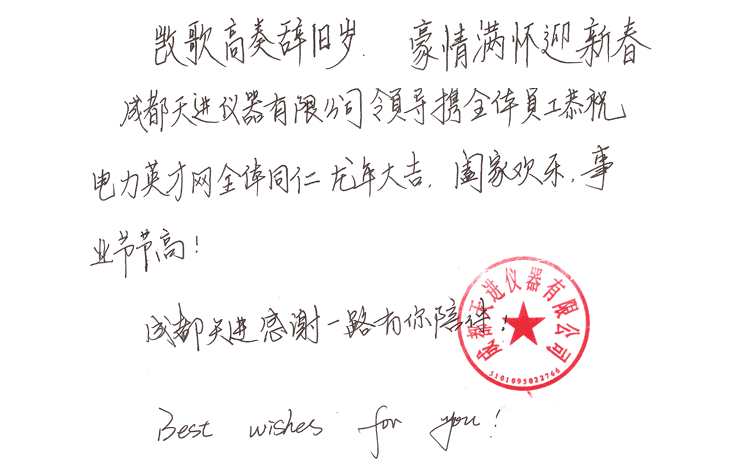 凯歌高奏辞旧岁. 豪情满怀迎新春
成都天进仪器有限公司领导携全体员工恭祝
电力英才网全体同仁龙年大吉, 阖家欢乐, 事
业节节高!
成都天进感谢一路有你陪伴!
成都天进仪器有限公司
5101095022766
Best wishes for you!